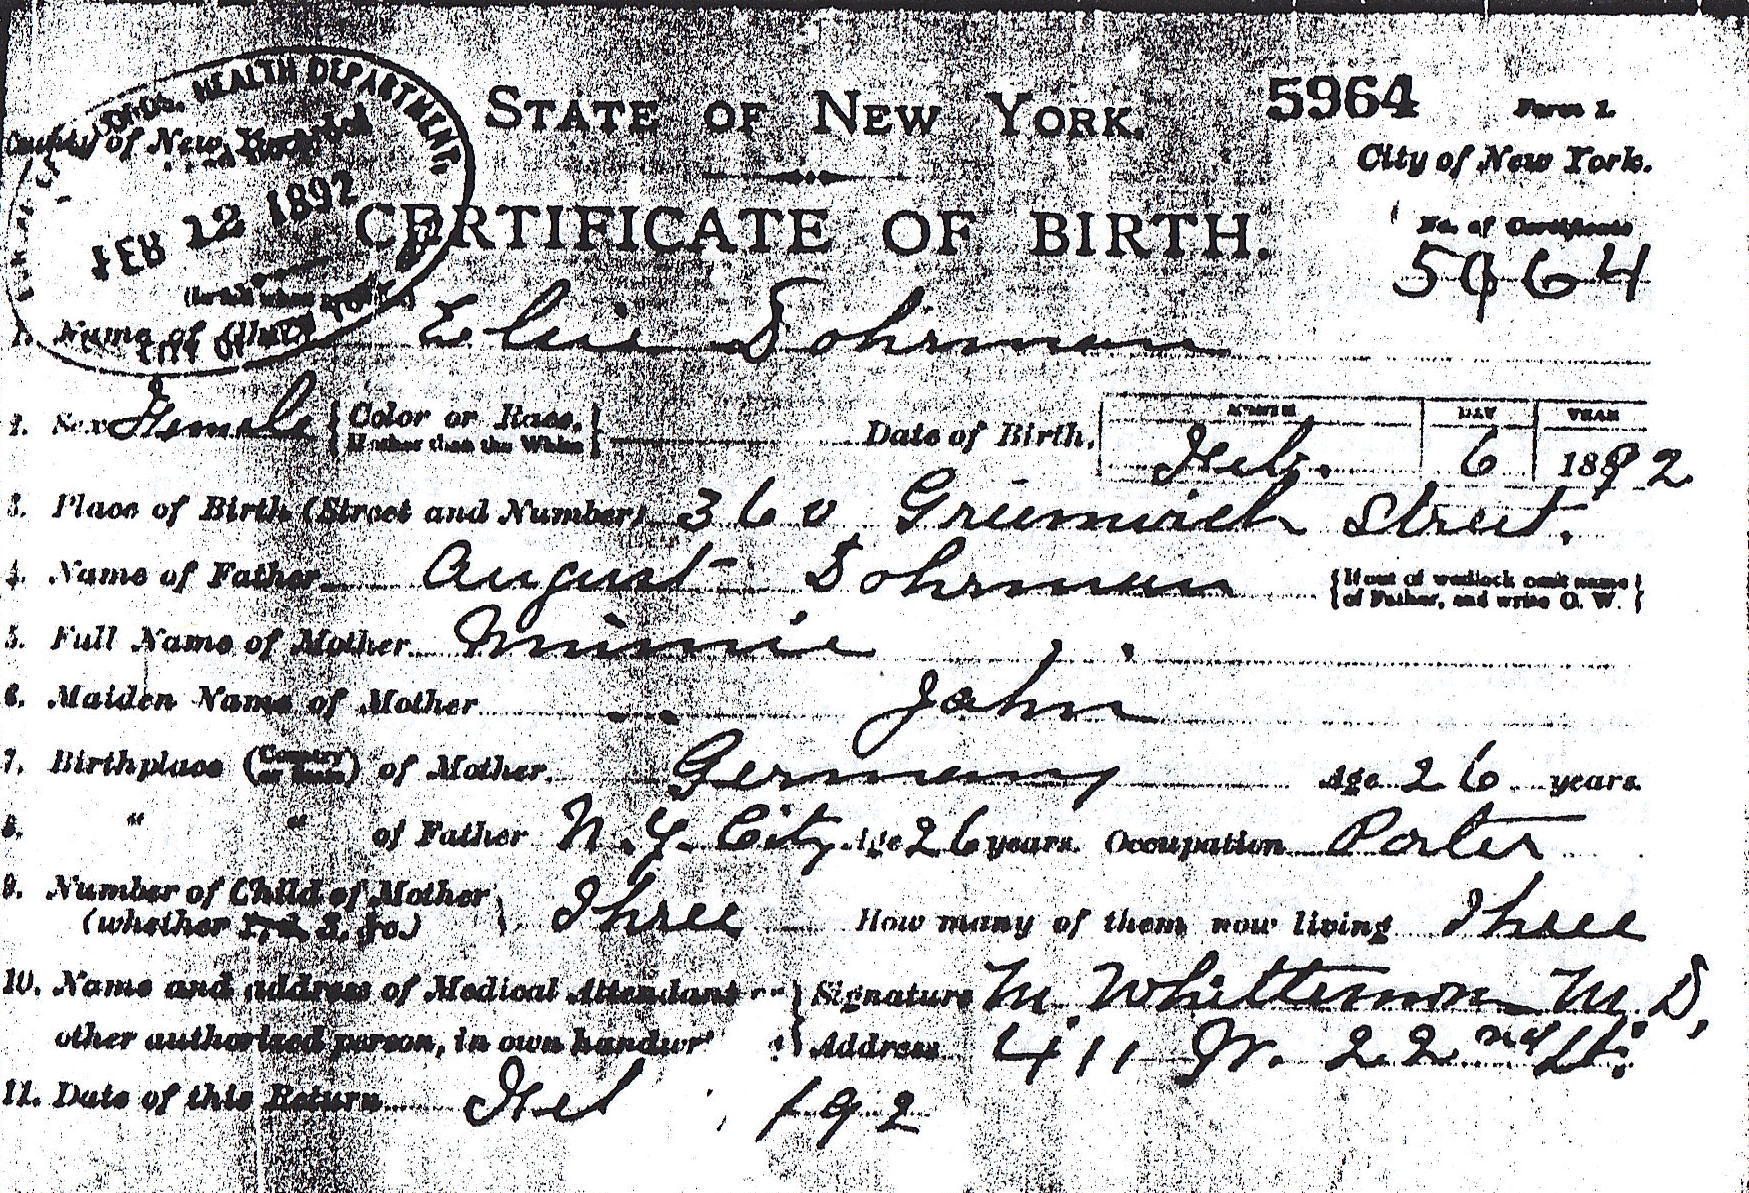 HEALTH DEPARTMENT
STATE OF NEW YORK. 5964 Form 1.
of New York City of New York.
FEB 12 1892
CERTIFICATE OF BIRTH. No. of Certificate
5964
1. Name of Child Elsie Dohrman
MONTH DAY YEAR
2. Sex Female {Color or Race, If other than the White} Date of Birth, Feb. 6 1892
3. Place of Birth (Street and Number) 360 Greenwich Street.
4. Name of Father August Dohrman {If out of wedlock omit name of Father, and write O. W.}
5. Full Name of Mother Minnie
6. Maiden Name of Mother John
7. Birthplace (Country or State) of Mother. Germany Age 26 years.
8. " " of Father N. Y. City Age 26 years. Occupation Porter
9. Number of Child of Mother Three How many of them now living Three
(whether 1, 2, 3, &c.)
10. Name and address of Medical Attendant Signature M. Whittemore M. D.
other authorized person, in own Address 411 W. 22nd St.
11. Date of this Return Feb 192